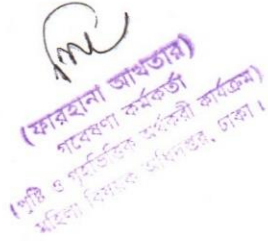 (ফারহানা আখতার)
গবেষণা কর্মকর্তা
(পুষ্টি ও গৃহভিত্তিক অর্থকরী কার্যক্রম)
মহিলা বিষয়ক অধিদপ্তর, ঢাকা।